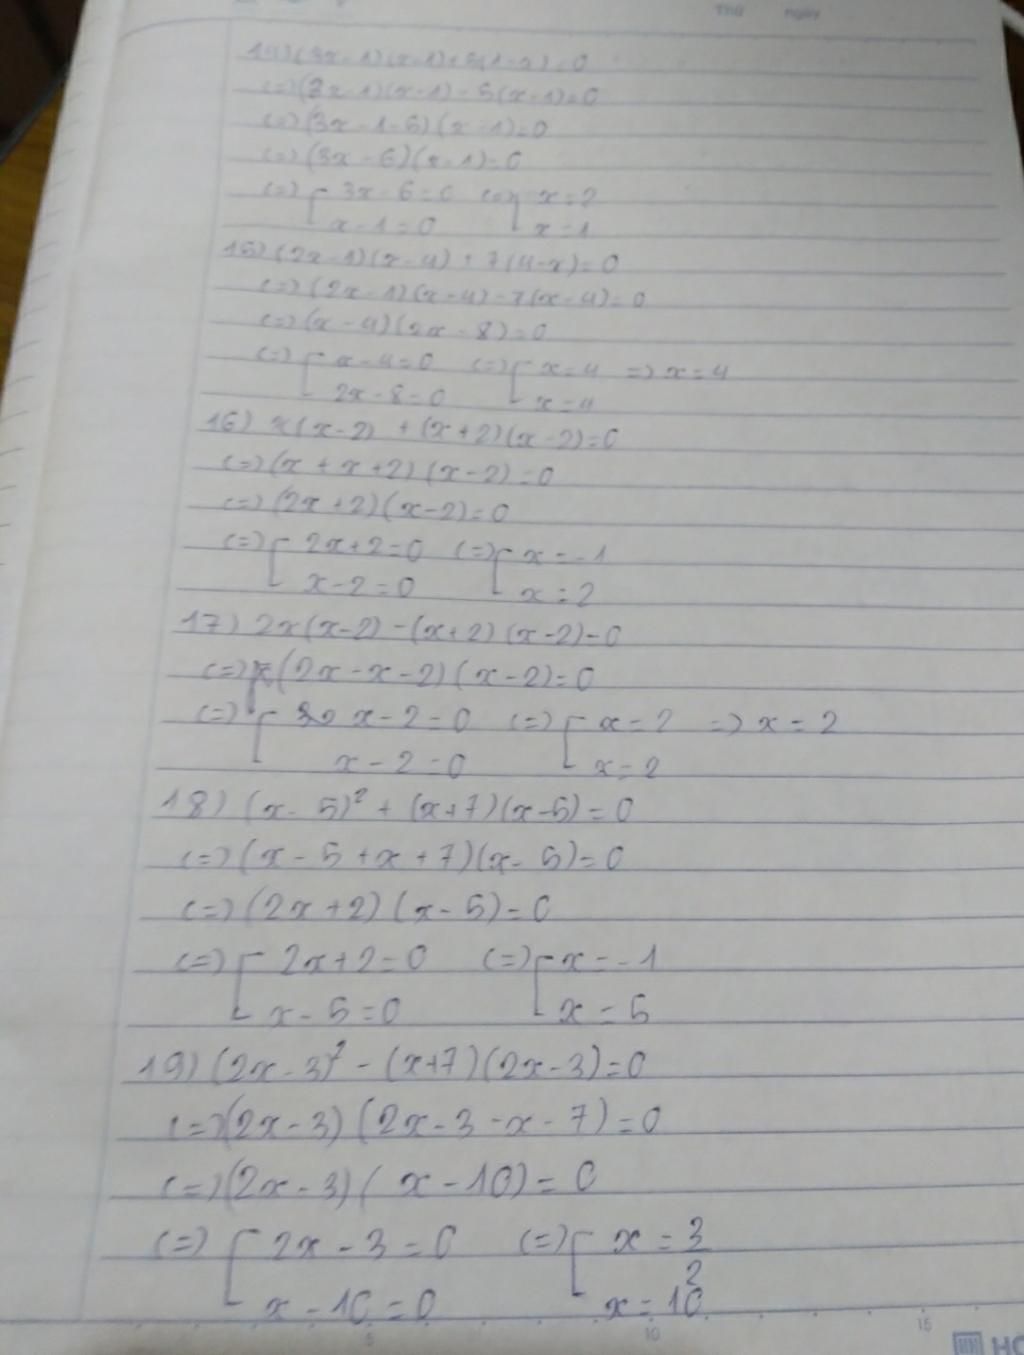 Thứ ngày
14) (3x-1)(x-1)+5(1-x)=0
(=)(3x-1)(x-1)-5(x-1)=0
(=)(3x-1-5)(x-1)=0
(=)(3x-6)(x-1)=0
(=)[ 3x-6=0 (=)[ x=2
x-1=0 x=1
15) (2x-1)(x-4)+7(4-x)=0
(=)(2x-1)(x-4)-7(x-4)=0
(=)(x-4)(2x-8)=0
(=)[ x-4=0 (=)[ x=4 =) x=4
2x-8=0 x=4
16) x(x-2)+(x+2)(x-2)=0
(=)(x+x+2)(x-2)=0
(=)(2x+2)(x-2)=0
(=)[ 2x+2=0 (=)[ x=-1
x-2=0 x=2
17) 2x(x-2)-(x+2)(x-2)=0
(=)(2x-x-2)(x-2)=0
(=)[ x-2=0 (=)[ x=2 =) x=2
x-2=0 x=2
18) (x-5)²+(x+7)(x-5)=0
(=)(x-5+x+7)(x-5)=0
(=)(2x+2)(x-5)=0
(=)[ 2x+2=0 (=)[ x=-1
x-5=0 x=5
19) (2x-3)²-(x+7)(2x-3)=0
(=)(2x-3)(2x-3-x-7)=0
(=)(2x-3)(x-10)=0
(=)[ 2x-3=0 (=)[ x=3/2
x-10=0 x=10
5 10 15